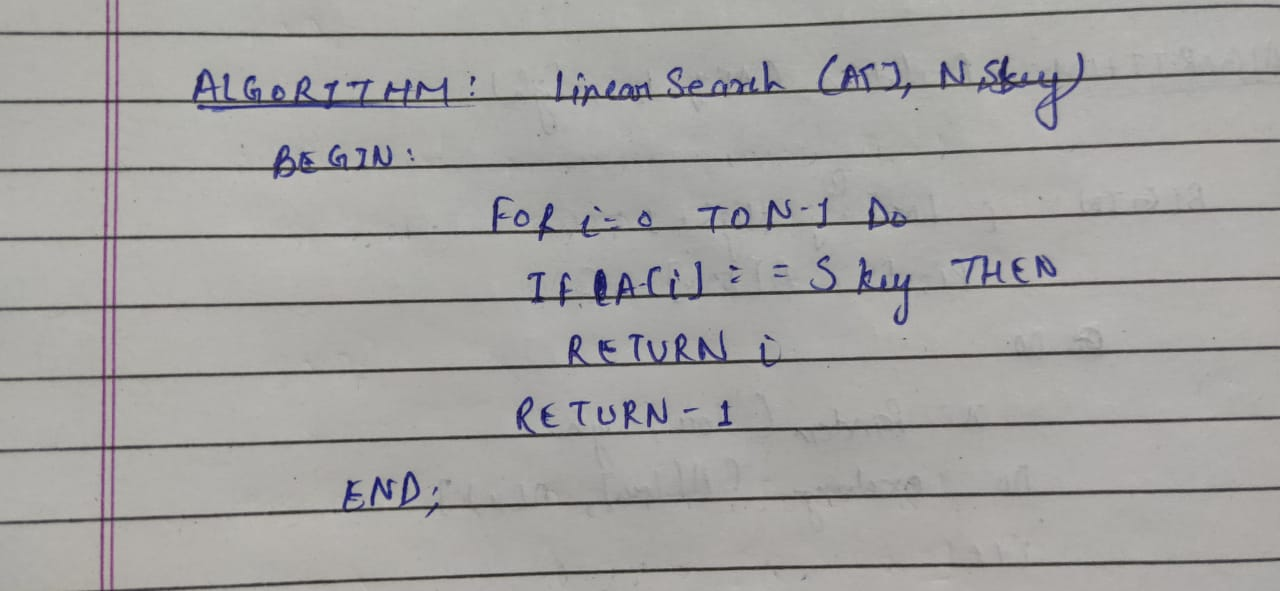 ALGORITHM: Linear Search (A[], N, Skey)
BEGIN:
FOR i=0 TO N-1 DO
IF A[i] == Skey THEN
RETURN i
RETURN -1
END;